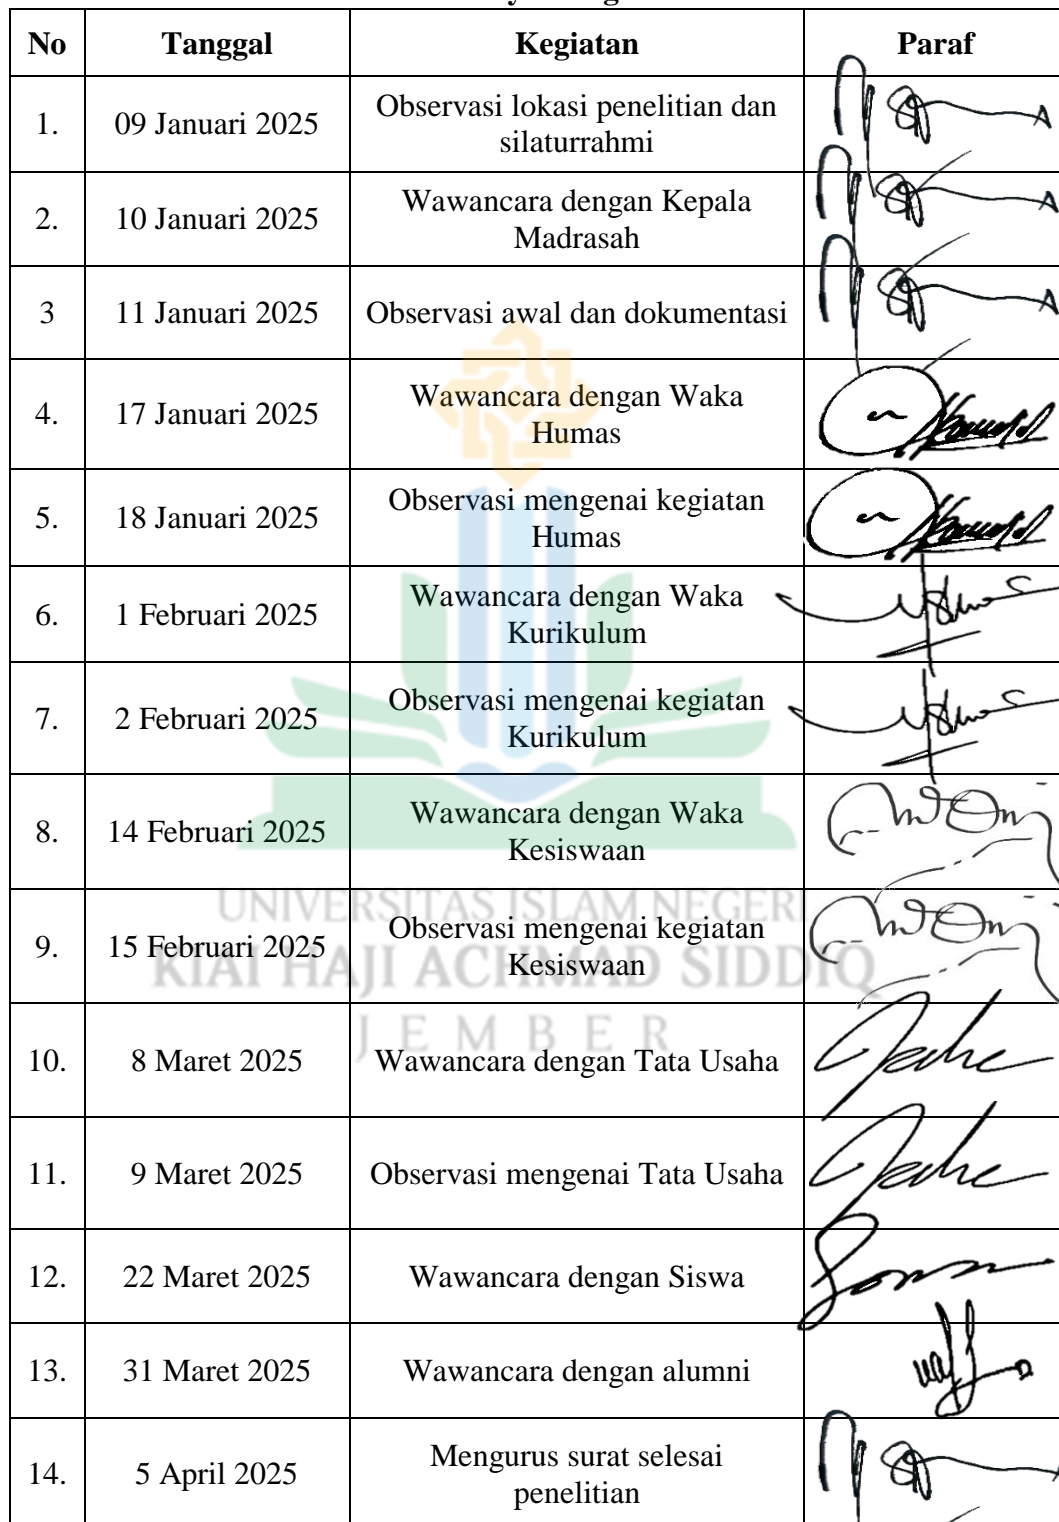 No Tanggal Kegiatan Paraf
1. 09 Januari 2025 Observasi lokasi penelitian dan
silaturrahmi
2. 10 Januari 2025 Wawancara dengan Kepala
Madrasah
3 11 Januari 2025 Observasi awal dan dokumentasi
4. 17 Januari 2025 Wawancara dengan Waka
Humas
5. 18 Januari 2025 Observasi mengenai kegiatan
Humas
6. 1 Februari 2025 Wawancara dengan Waka
Kurikulum
7. 2 Februari 2025 Observasi mengenai kegiatan
Kurikulum
8. 14 Februari 2025 Wawancara dengan Waka
Kesiswaan
UNIVERSITAS ISLAM NEGERI
9. 15 Februari 2025 Observasi mengenai kegiatan
Kesiswaan
KIAI HAJI ACHMAD SIDDIQ
JEMBER
10. 8 Maret 2025 Wawancara dengan Tata Usaha
11. 9 Maret 2025 Observasi mengenai Tata Usaha
12. 22 Maret 2025 Wawancara dengan Siswa
13. 31 Maret 2025 Wawancara dengan alumni
14. 5 April 2025 Mengurus surat selesai
penelitian